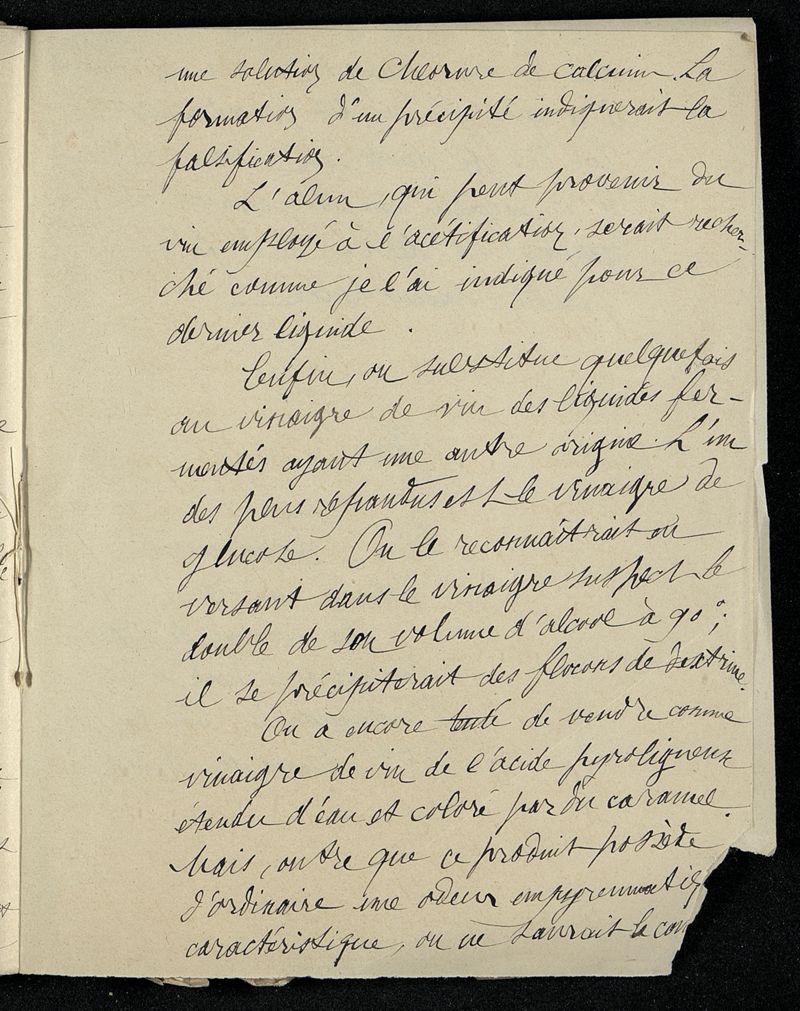 une solution de Chlorure de calcium. La
formation d'un précipité indiquerait la
falsification.
L'alun, qui peut provenir du
vin employé à l'acétification, serait recher-
ché comme je l'ai indiqué pour ce
dernier liquide.
Enfin, on substitue quelquefois
au vinaigre de vin des liquides fer-
mentés ayant une autre origine. L'un
des plus répandus est le vinaigre de
glucose. On le reconnaîtrait en
versant dans le vinaigre suspect le
double de son volume d'alcool à 90°;
il se précipiterait des flocons de dextrine.
On a encore tenté de vendre comme
vinaigre de vin de l'acide pyroligneux
étendu d'eau et coloré par du caramel.
Mais, outre que ce produit possède
d'ordinaire une odeur empyreumatiq
caractéristique, on ne saurait le con